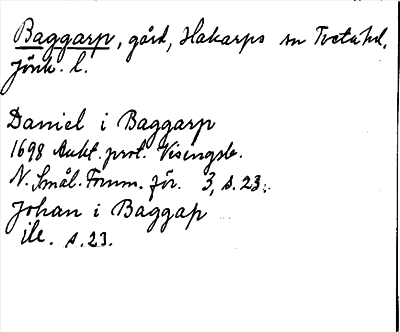 Baggarp, gård, Hakarps sn Tveta hd,
Jönk. l.
Daniel i Baggarp
1698 Aukt. prot. Visingsb.
N. Smål. Fornm. för. 3, s. 23.
Johan i Baggap
ib. s. 23.